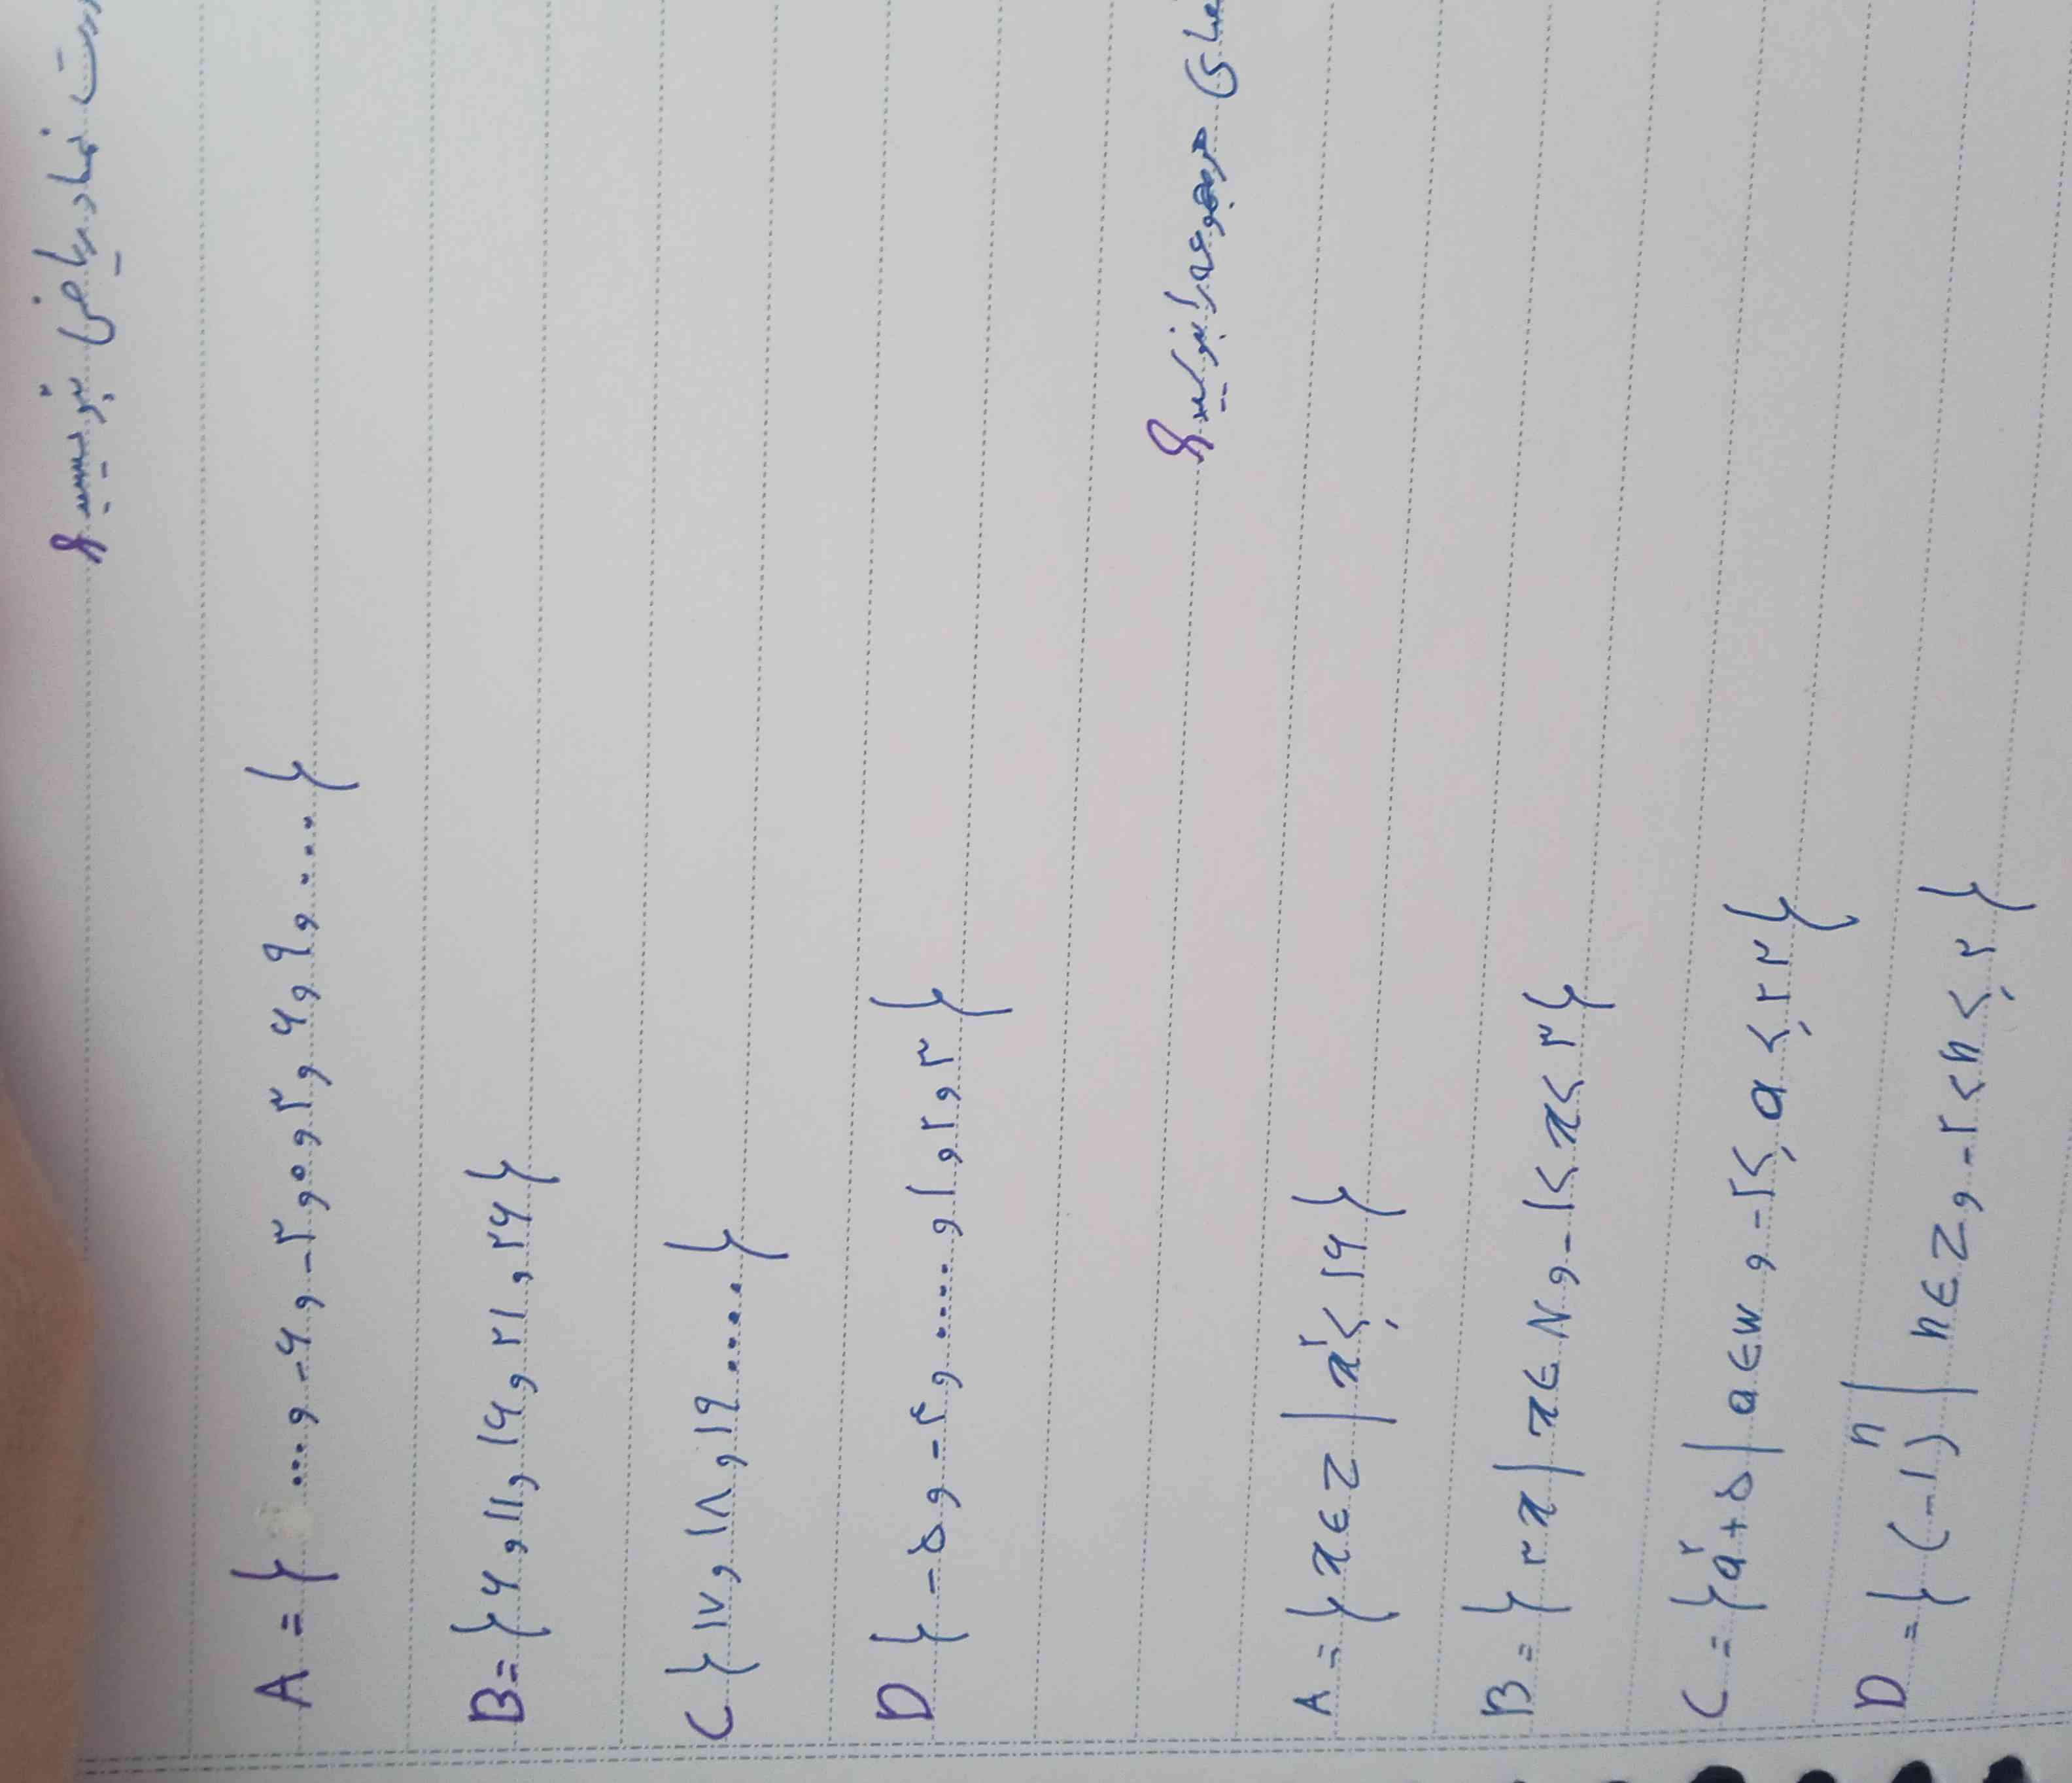 نماد ریاضی بنویسید؟
A = { ..., -۶, -۳, ۰, ۳, ۶, ۹, .... }
B = { ۶, ۱۱, ۱۶, ۲۱, ۲۶ }
C { ۱۷, ۱۸, ۱۹ .... }
D { -۵, -۴, ...., ۱, ۲, ۳ }
هر مجموعه را بنویسید؟
A = { x ∈ Z | x² ≤ ۱۶ }
B = { ۲x | x ∈ N, -۱ < x < ۳ }
C = { a² + ۵ | a ∈ W, -۲ ≤ a ≤ ۲۳ }
D = { (-۱)ⁿ | n ∈ Z, -۲ < n ≤ ۲ }